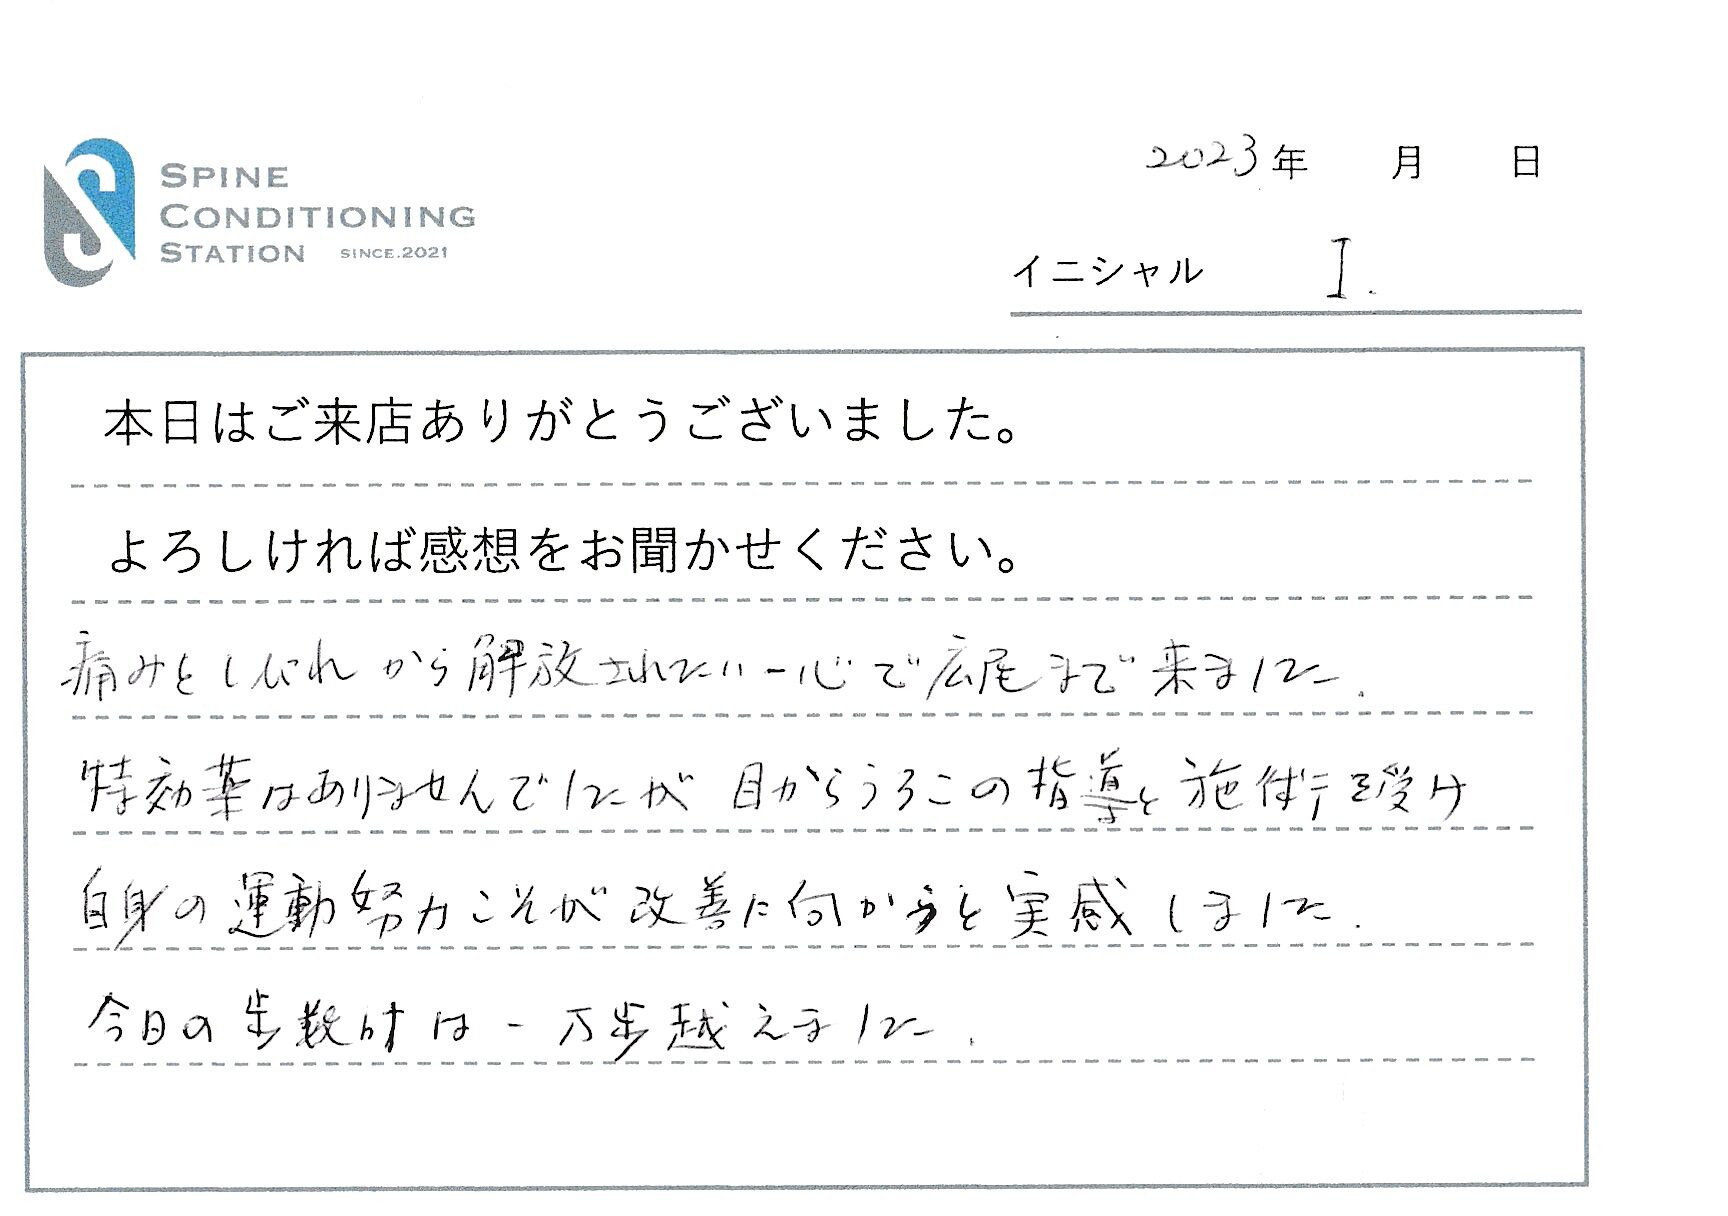 SPINE
CONDITIONING
STATION SINCE.2021
2023年 月 日
イニシャル I.
本日はご来店ありがとうございました。
よろしければ感想をお聞かせください。
痛みとしびれから解放されたい一心で広尾まで来ました.
特効薬はありませんでしたが 目からうろこの指導と施術を受け
自身の運動努力こそが改善に向かうと実感しました.
今日の歩数計は一万歩越えました.